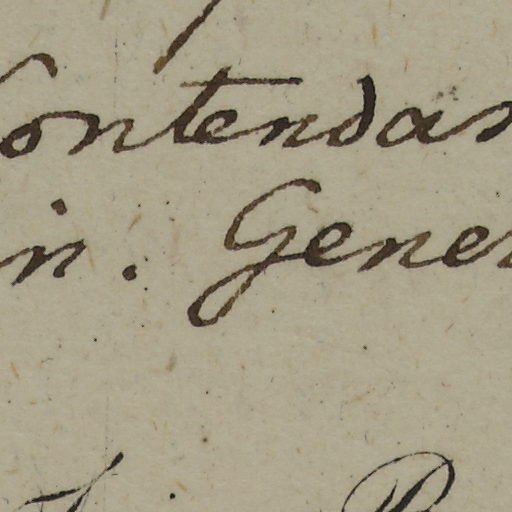 Contendan
in. Gener